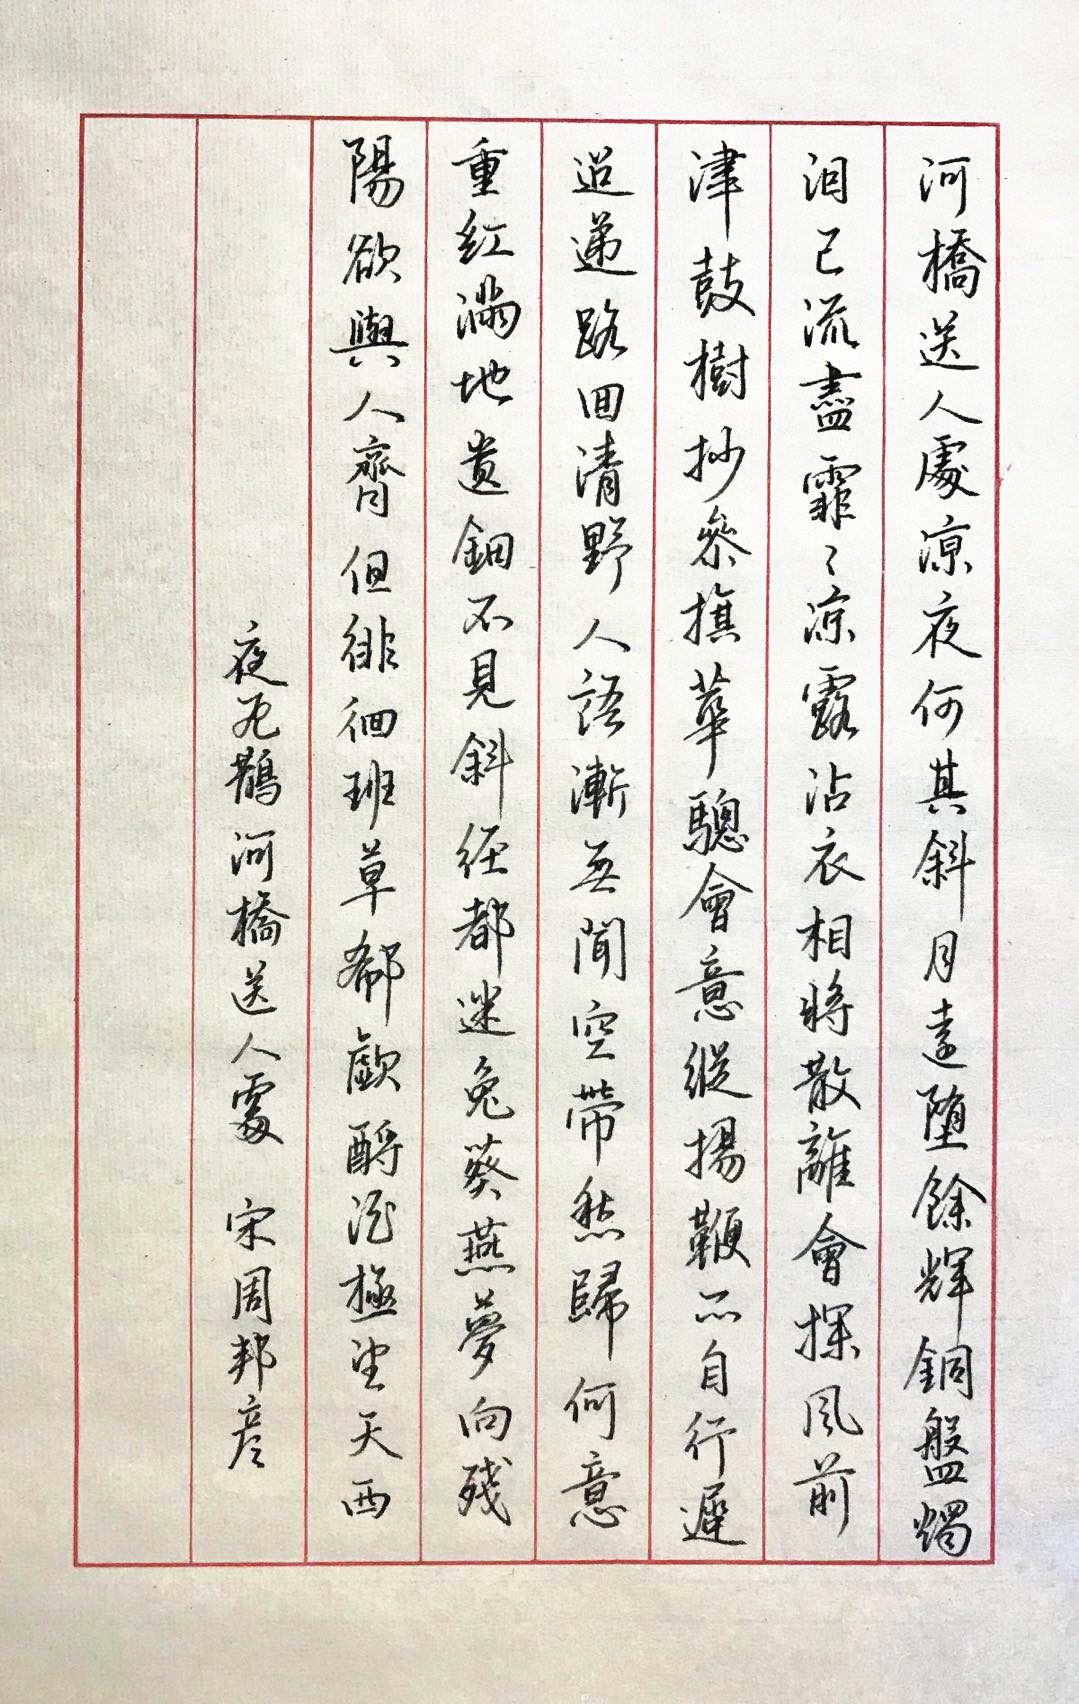 河橋送人處涼夜何其斜月遠墮餘輝銅盤燭
泪已流盡霏〻凉露沾衣相將散離會探風前
津鼓樹抄參旗華驄會意縱揚鞭亦自行遲
迢递路回清野人語漸無聞空帶愁歸何意
重紅滿地遺鈿不見斜徑都迷兔葵燕夢向殘
陽欲與人齊但徘徊班草欷歔酹酒極望天西
夜飛鵲河橋送人處 宋周邦彦